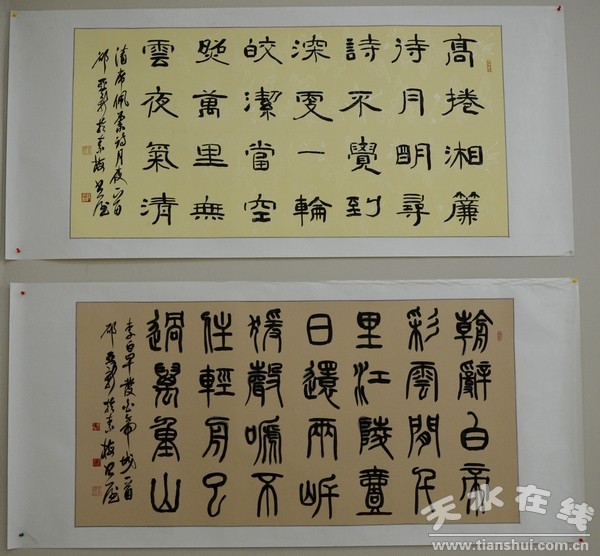 高捲湘簾
待月明尋
詩不覺到
深更一輪
皎潔當空
照萬里無
雲夜氣清
清席佩蘭詩月夜一首
邵亞於素梅書屋
朝辭白帝
彩雲間千
里江陵壹
日還兩岸
猨聲嗁不
住輕舟已
過萬重山
李白早發白帝城一首
邵亞於素梅書屋
天水在线
www.tianshui.com.cn